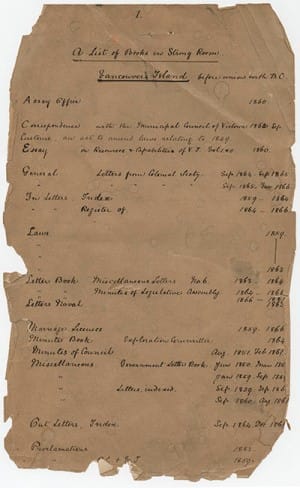 1.
A List of Books in Strong Room
Vancouver Island before union with B.C.
Assay Office 1860
Correspondence with the Municipal Council of Victoria 1862
Customs an act to amend laws relating to 1859
Essay on Resources & Capabilities of V.I. 1860.
General Letters from Colonial Secty. Sep. 1864 Sep 1865
" " Sep. 1865. Nov. 1866
In Letters Index 1859 - 1864
" " Register of. 1864 - 1866
Laws 1859.
"
"
" 1863
Letter Book Miscellaneous Letters 1863 - 1864
" Minutes of Legislative Assembly 1864 - 1865
Letters Naval
Marriage Licenses 1859. 1866
Minutes Book. Exploration Committee 1864
Minutes of Councils Aug. 1851. Feb 1861.
Miscellaneous Government Letter Book. June 1850.
" " Jan. 1859. Sep.
" Letters, indexed. Sep. 1859. Sep.
" " Sep. 1860. Aug 1861
Out Letters, Index. Sep. 1864. Oct.
Proclamations
" 1859.